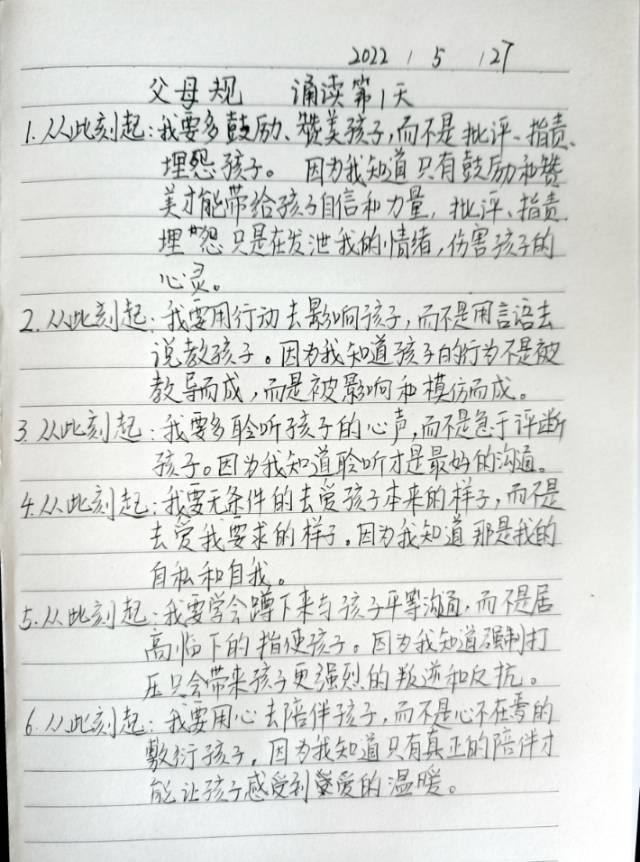 2022 / 5 /27
父母规 诵读第1天
1.从此刻起:我要多鼓励、赞美孩子,而不是批评、指责、
埋怨孩子。因为我知道只有鼓励和赞
美才能带给孩子自信和力量,批评、指责、
埋怨只是在发泄我的情绪,伤害孩子的
心灵。
2.从此刻起:我要用行动去影响孩子,而不是用言语去
说教孩子。因为我知道孩子的行为不是被
教导而成,而是被影响和模仿而成。
3.从此刻起:我要多聆听孩子的心声,而不是急于评断
孩子。因为我知道聆听才是最好的沟通。
4.从此刻起:我要无条件的去爱孩子本来的样子,而不是
去爱我要求的样子。因为我知道那是我的
自私和自我。
5.从此刻起:我要学会蹲下来与孩子平等沟通,而不是居
高临下的指使孩子。因为我知道强制打
压只会带来孩子更强烈的叛逆和反抗。
6.从此刻起:我要用心去陪伴孩子,而不是心不在焉的
敷衍孩子,因为我知道只有真正的陪伴才
能让孩子感受到爱的温暖。